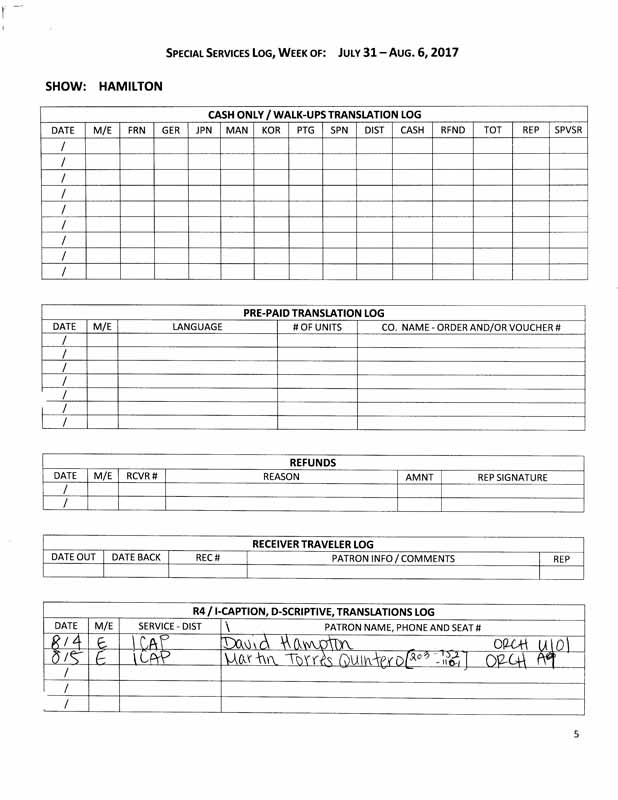 SPECIAL SERVICES LOG, WEEK OF: JULY 31 – AUG. 6, 2017
SHOW: HAMILTON
CASH ONLY / WALK-UPS TRANSLATION LOG
DATE M/E FRN GER JPN MAN KOR PTG SPN DIST CASH RFND TOT REP SPVSR
/
/
/
/
/
/
/
/
/
PRE-PAID TRANSLATION LOG
DATE M/E LANGUAGE # OF UNITS CO. NAME - ORDER AND/OR VOUCHER #
/
/
/
/
/
/
/
REFUNDS
DATE M/E RCVR # REASON AMNT REP SIGNATURE
/
/
RECEIVER TRAVELER LOG
DATE OUT DATE BACK REC # PATRON INFO / COMMENTS REP
R4 / I-CAPTION, D-SCRIPTIVE, TRANSLATIONS LOG
DATE M/E SERVICE - DIST \ PATRON NAME, PHONE AND SEAT #
8/4 E ICAP David Hampton ORCH U101
8/5 E ICAP Martin Torres Quintero ORCH A9
/
/
/
5